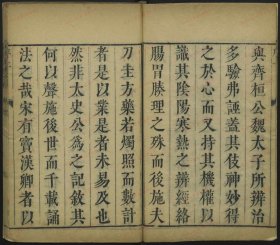 與齊桓公魏太子所辨治
多驗弗誣蓋其伎神妙得
之於心而又持其機權以
識其陰陽寒熱之辨經絡
腸胃腠理之殊而後施夫
刀圭方藥若燭照而數計
者是以業是者未易及也
然非太史公為之記敘其
何以聲施後世而千載誦
法之哉宋有竇漢卿者以